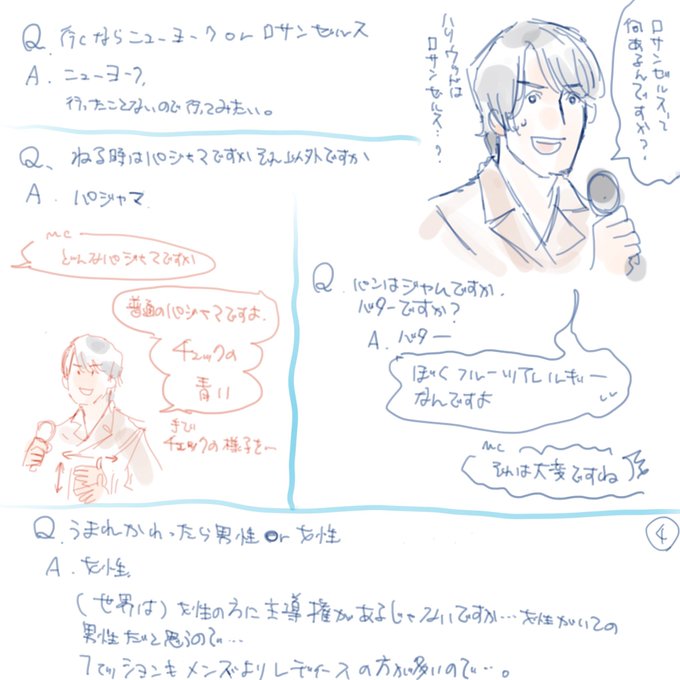 Q. 行くならニューヨークorロサンゼルス
A. ニューヨーク、
行ったことないので行ってみたい。
ロサンゼルスって
何あるんですか?
ハリウッドは
ロサンゼルス…?
Q、ねる時はパジャマですかそれ以外ですか
A. パジャマ
MC
どんなパジャマですか
普通のパジャマですよ、
チェックの
青い
手で
チェックの様子を…
Q. パンはジャムですか、
バターですか?
A. バター
ぼくフルーツアレルギー
なんですよ
MC
それは大変ですね
Q. うまれかわったら男性or女性
④
A. 女性、
(世界は)女性の方に主導権があるじゃないですか…女性がいての
男性だと思うので…
ファッションもメンズよりレディースの方が多いので…。